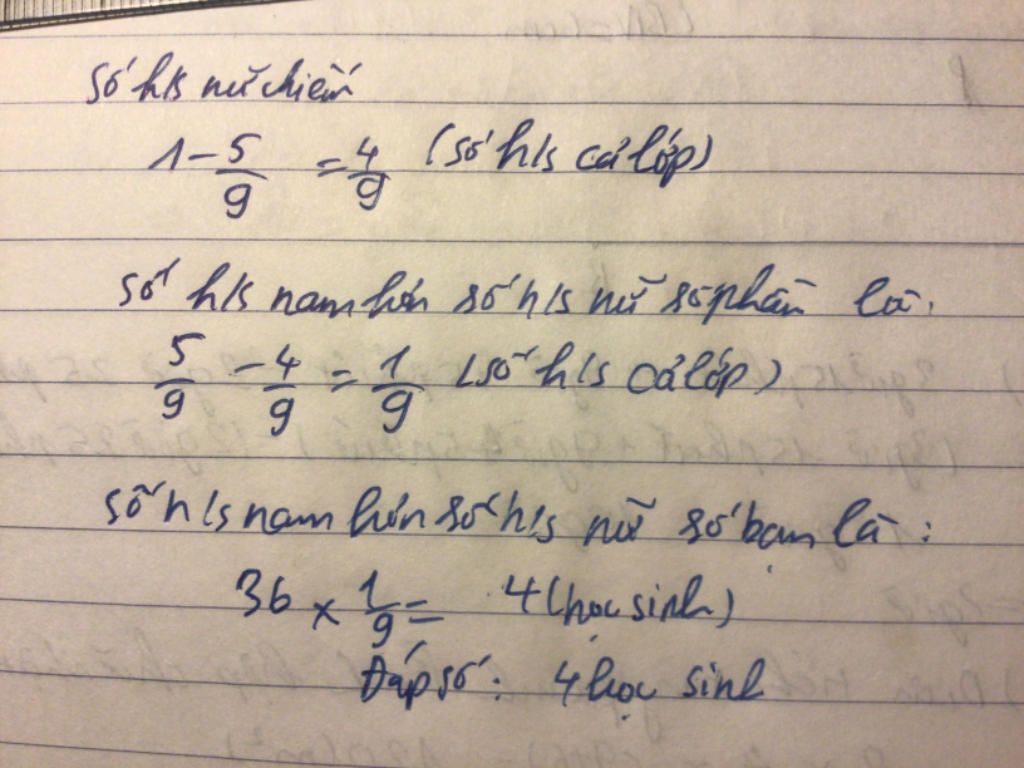 số h/s nữ chiếm
1 - 5/9 = 4/9 (số h/s cả lớp)
số h/s nam hơn số h/s nữ số phần là:
5/9 - 4/9 = 1/9 (số h/s cả lớp)
số h/s nam hơn số h/s nữ số bạn là:
36 × 1/9 = 4 (học sinh)
Đáp số: 4 học sinh